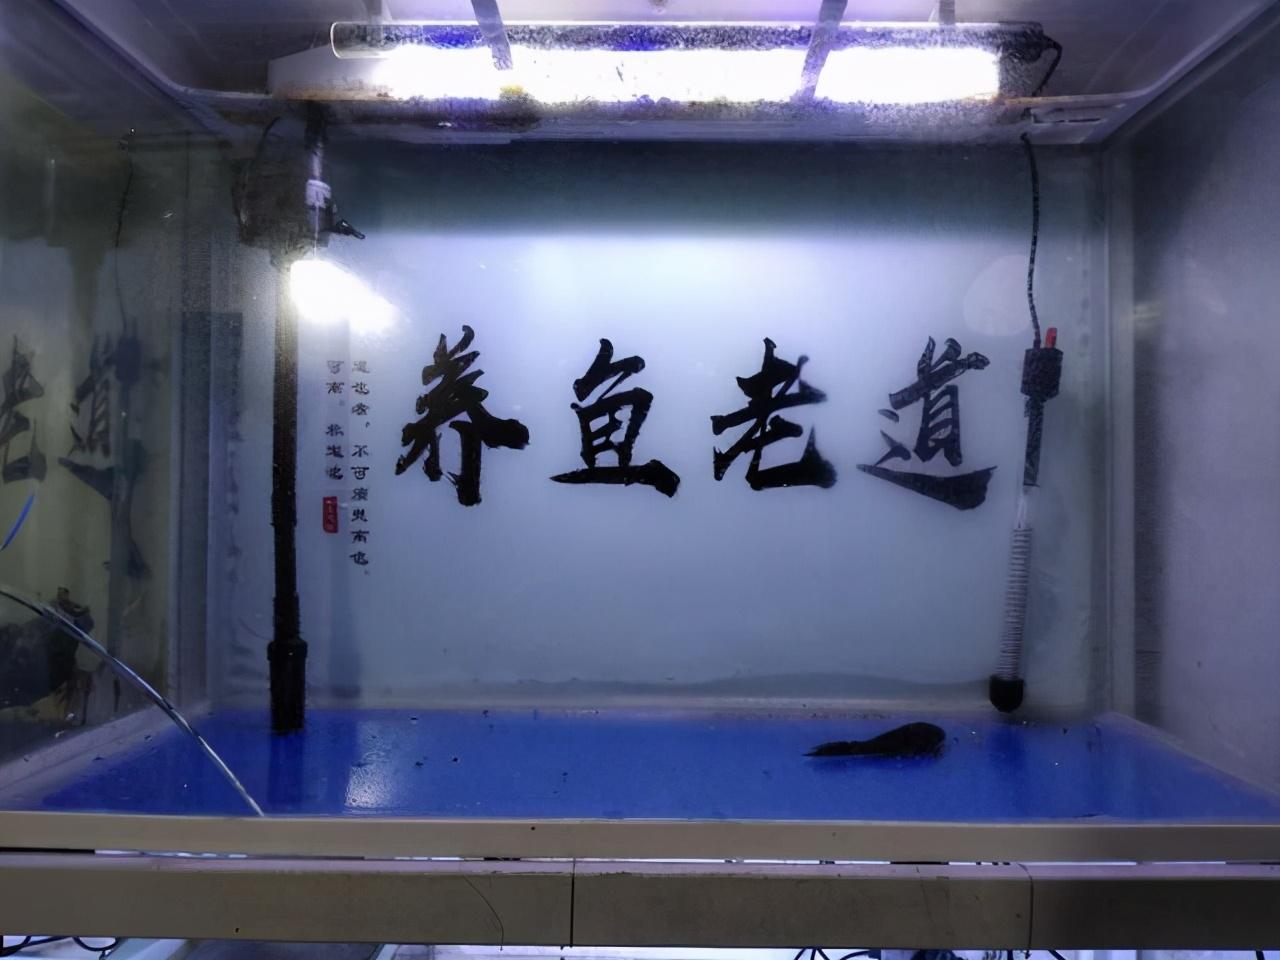 养鱼老道
道也者，不可须臾离也。
可离。非道也